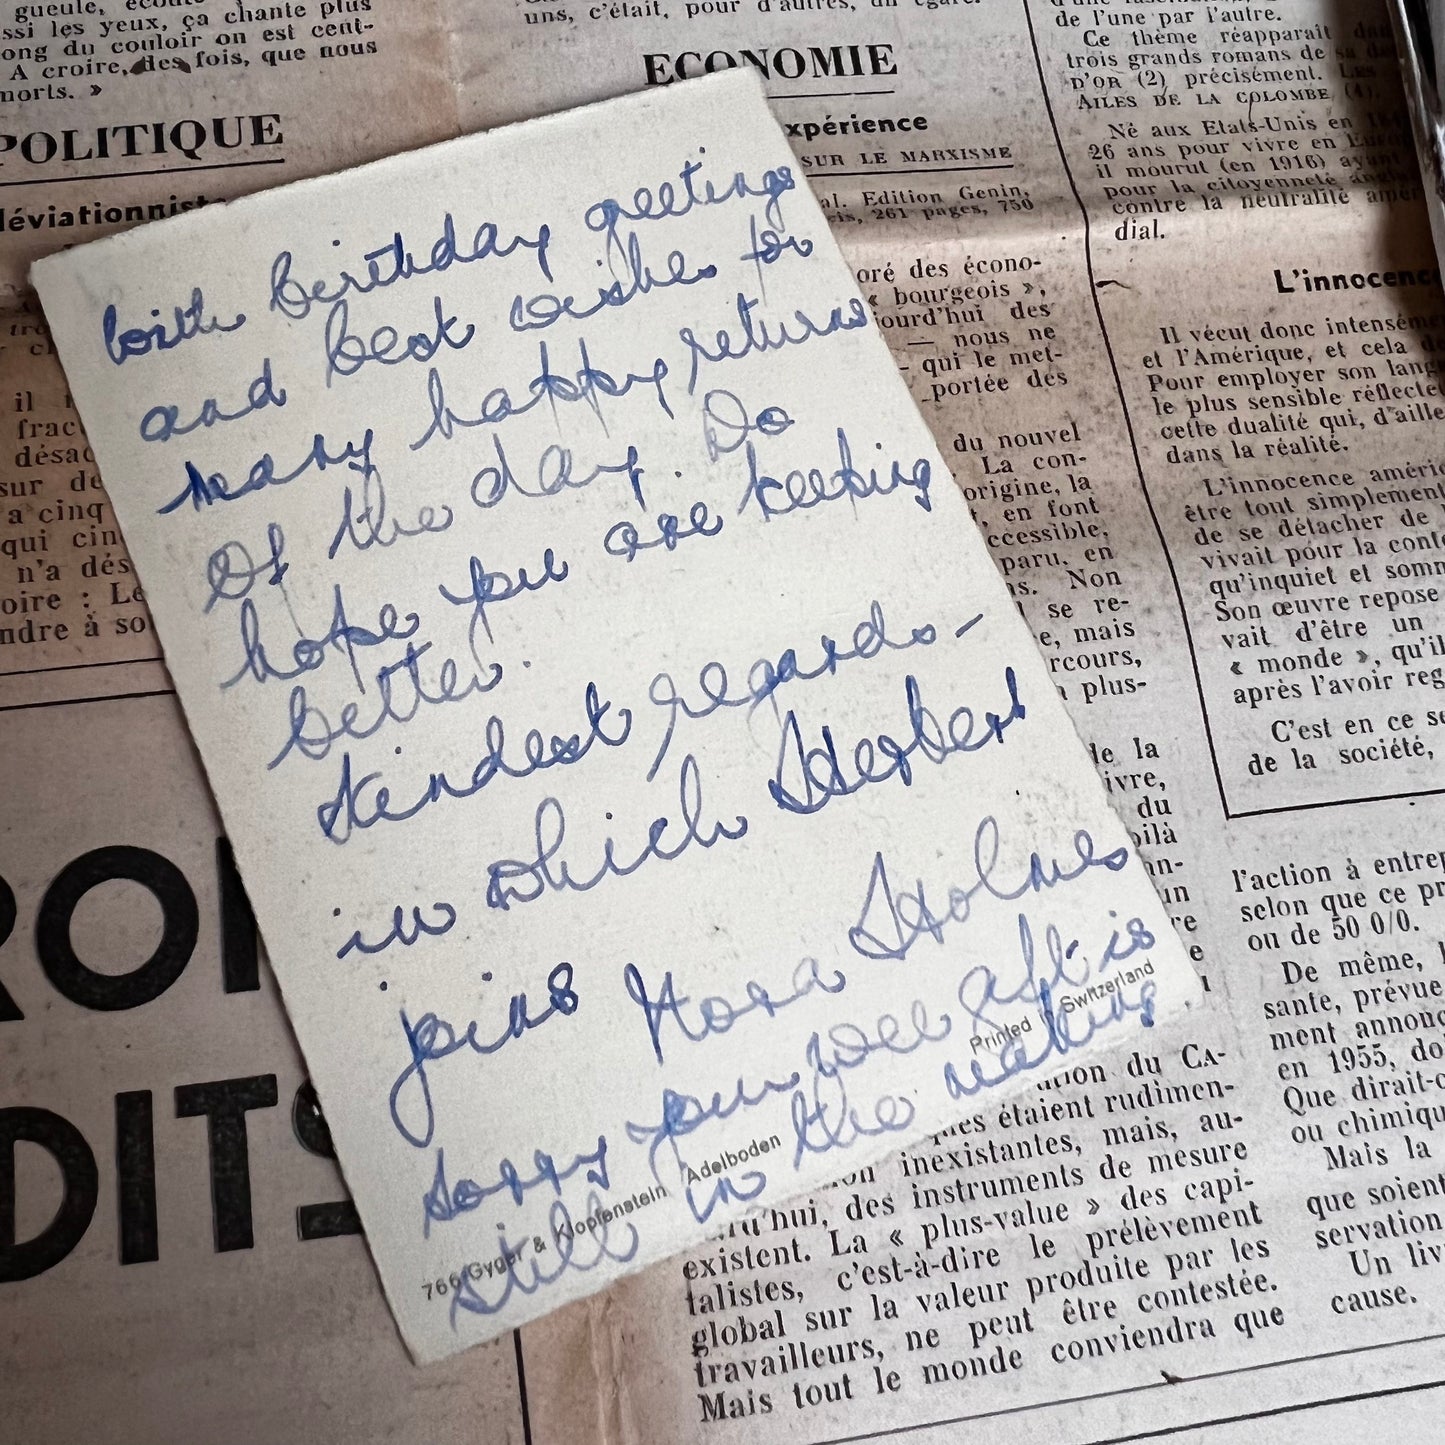 gueule, écoute
ssi les yeux, ça chante plus
ong du couloir on est cent-
A croire, des fois, que nous
morts. »
POLITIQUE
déviationnist
il
frac
désac
sur de
a cinq
qui cin
n'a dés
oire : Le
ndre à so
RO
DITS
uns, c'était, pour d'autres, un égare.
ECONOMIE
xpérience
SUR LE MARXISME
al. Edition Genin,
ris, 261 pages, 750
with birthday greetings
and best wishes for
many happy returns
of the day. Do
hope you are keeping
better.
Kindest regards -
in which Herbert
joins Nora Holmes
Sorry you wee aft is
still in the making
766 Gyger & Klopfenstein Adelboden
Printed in Switzerland
oré des écono-
« bourgeois »,
jourd'hui des
— nous ne
- qui le met-
portée des
du nouvel
La con-
origine, la
, en font
ccessible,
paru, en
ns. Non
l se re-
e, mais
rcours,
a plus-
de la
ivre,
du
oilà
an-
un
re
e
ution du CA-
ques étaient rudimen-
inexistantes, mais, au-
rd'hui, des instruments de mesure
existent. La « plus-value » des capi-
talistes, c'est-à-dire le prélèvement
global sur la valeur produite par les
travailleurs, ne peut être contestée.
Mais tout le monde conviendra que
de l'une par l'autre.
Ce thème réapparaît dan
trois grands romans de sa
D'OR (2) précisément. LES
AILES DE LA COLOMBE (4).
Né aux Etats-Unis en
26 ans pour vivre en
il mourut (en 1916) ayant
pour la citoyenneté angl
contre la neutralité amér
dial.
L'innocence
Il vécut donc intenséme
et l'Amérique, et cela d
Pour employer son lang
le plus sensible réflecte
cette dualité qui, d'aille
dans la réalité.
L'innocence améric
être tout simplement
de se détacher de
vivait pour la conte
qu'inquiet et somm
Son œuvre repose
vait d'être un
« monde », qu'il
après l'avoir reg
C'est en ce se
de la société,
l'action à entrep
selon que ce pr
ou de 50 0/0.
De même, l
sante, prévue
ment annonc
en 1955, do
Que dirait-o
ou chimiqu
Mais la
que soient
servation
Un liv
cause.